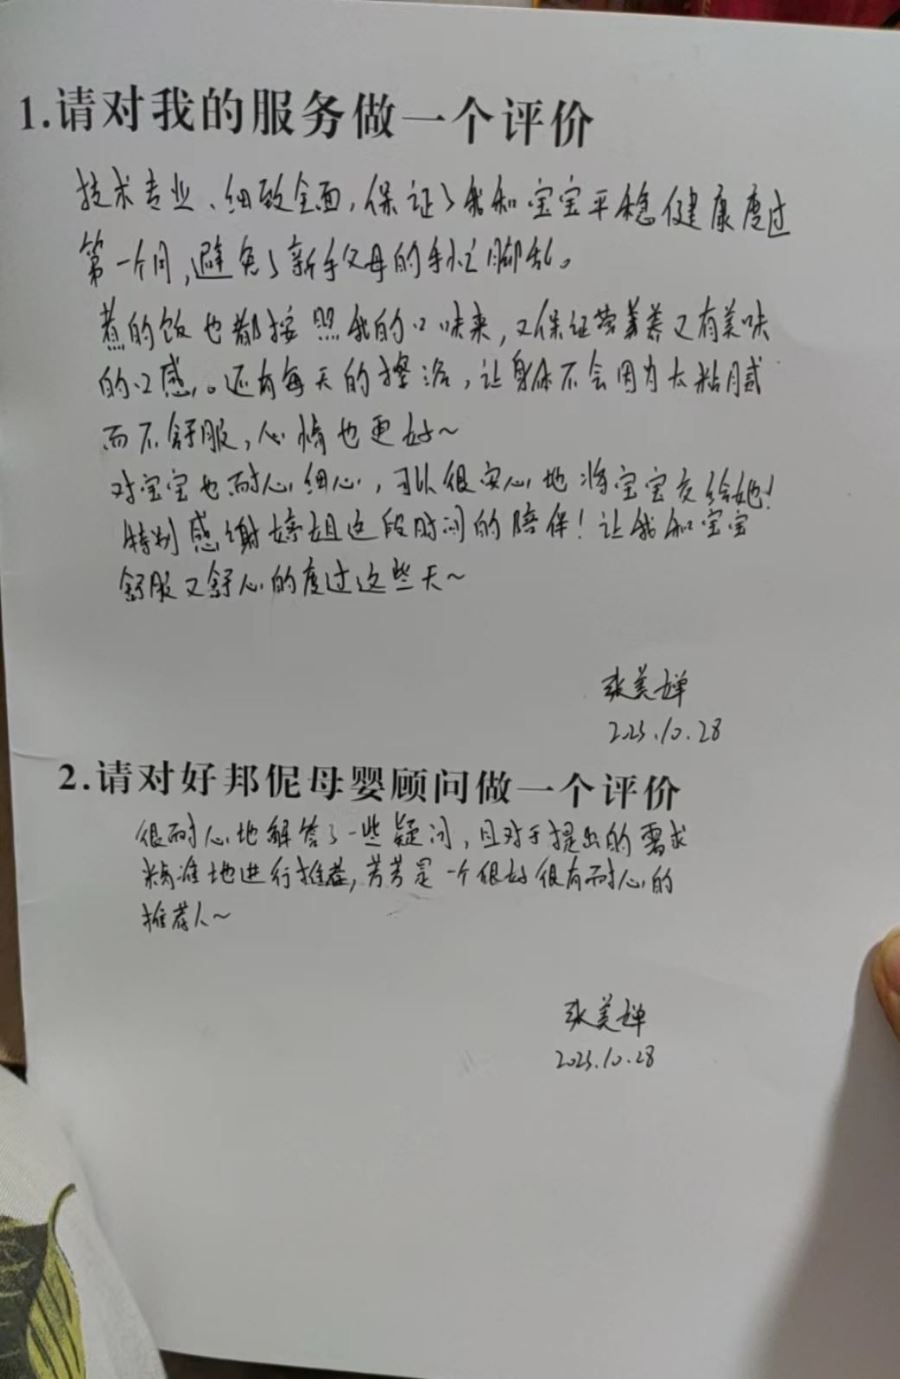 1.请对我的服务做一个评价
技术专业、细致全面,保证了我和宝宝平稳健康度过
第一个月,避免了新手父母的手忙脚乱。
煮的饭也都按照我的口味来,又保证营养又有美味
的口感。还有每天的擦浴,让身体不会因为太粘腻
而不舒服,心情也更好~
对宝宝也耐心细心,可以很安心地将宝宝交给她!
特别感谢婷姐这段时间的陪伴!让我和宝宝
舒服又舒心的度过这些天~
张美婵
2025.10.28
2.请对好邦伲母婴顾问做一个评价
很耐心地解答了一些疑问,且对于提出的需求
精准地进行推荐,芳芳是一个很好很有耐心的
推荐人~
张美婵
2025.10.28